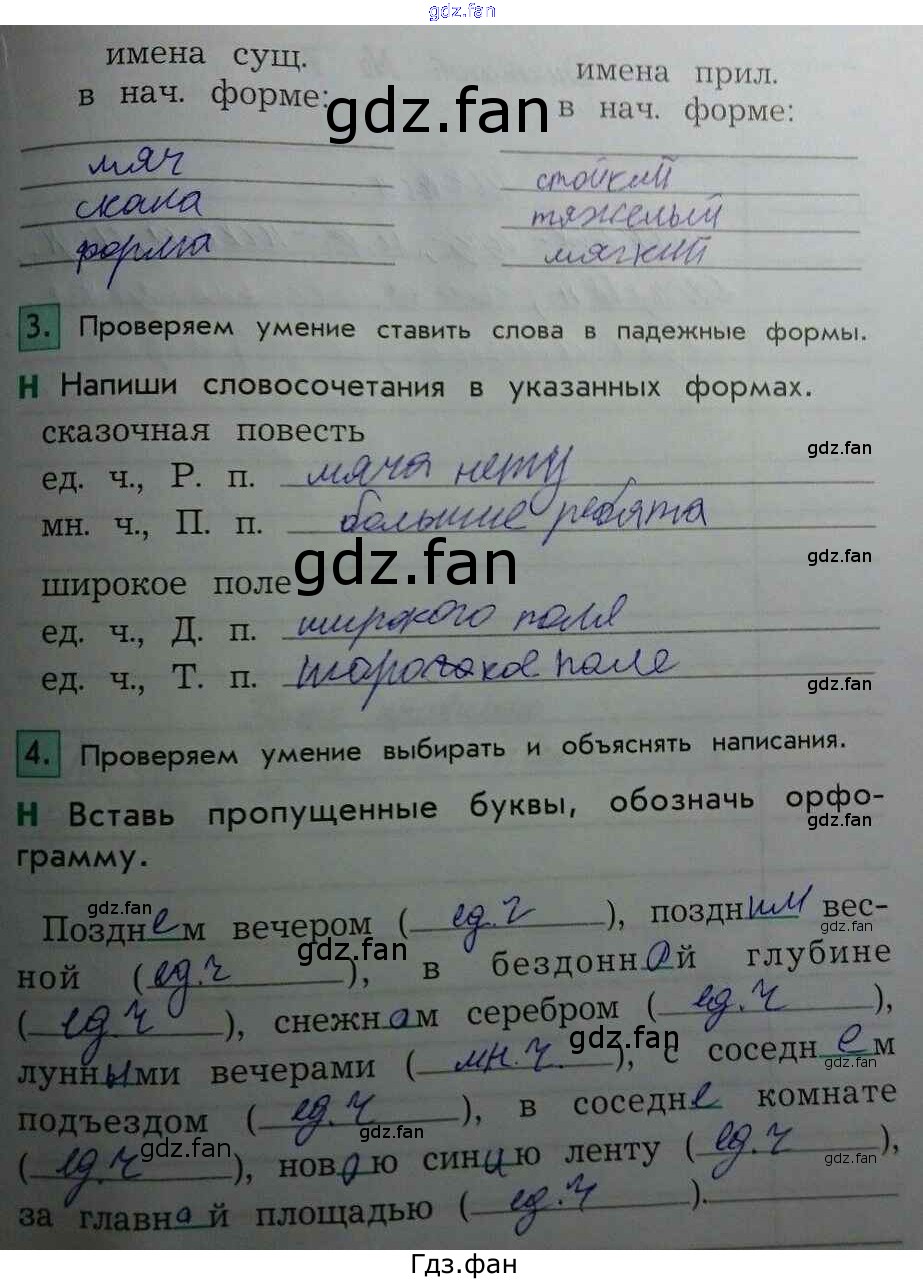 gdz.fan
имена сущ.
в нач. форме:
имена прил.
в нач. форме:
gdz.fan
мяч
скала
форма
стойкий
тяжелый
мягкий
3. Проверяем умение ставить слова в падежные формы.
Н Напиши словосочетания в указанных формах.
сказочная повесть
gdz.fan
ед. ч., Р. п. мяча нету
мн. ч., П. п. большие ребята
gdz.fan
gdz.fan
широкое поле
ед. ч., Д. п. широкого поля
ед. ч., Т. п. поле
gdz.fan
4. Проверяем умение выбирать и объяснять написания.
Н Вставь пропущенные буквы, обозначь орфо-
gdz.fan
грамму.
gdz.fan
Позднем вечером (ед.ч), поздним вес-
gdz.fan
ной (ед.ч), в бездонной глубине
gdz.fan
(ед.ч), снежнам серебром (ед.ч),
gdz.fan
лунными вечерами (мн.ч), с соседнем
gdz.fan
подъездом (ед.ч), в соседне комнате
gdz.fan
gdz.fan
(ед.ч), новою синию ленту (ед.ч),
gdz.fan
за главнай площадью (ед.ч).
Гдз.фан